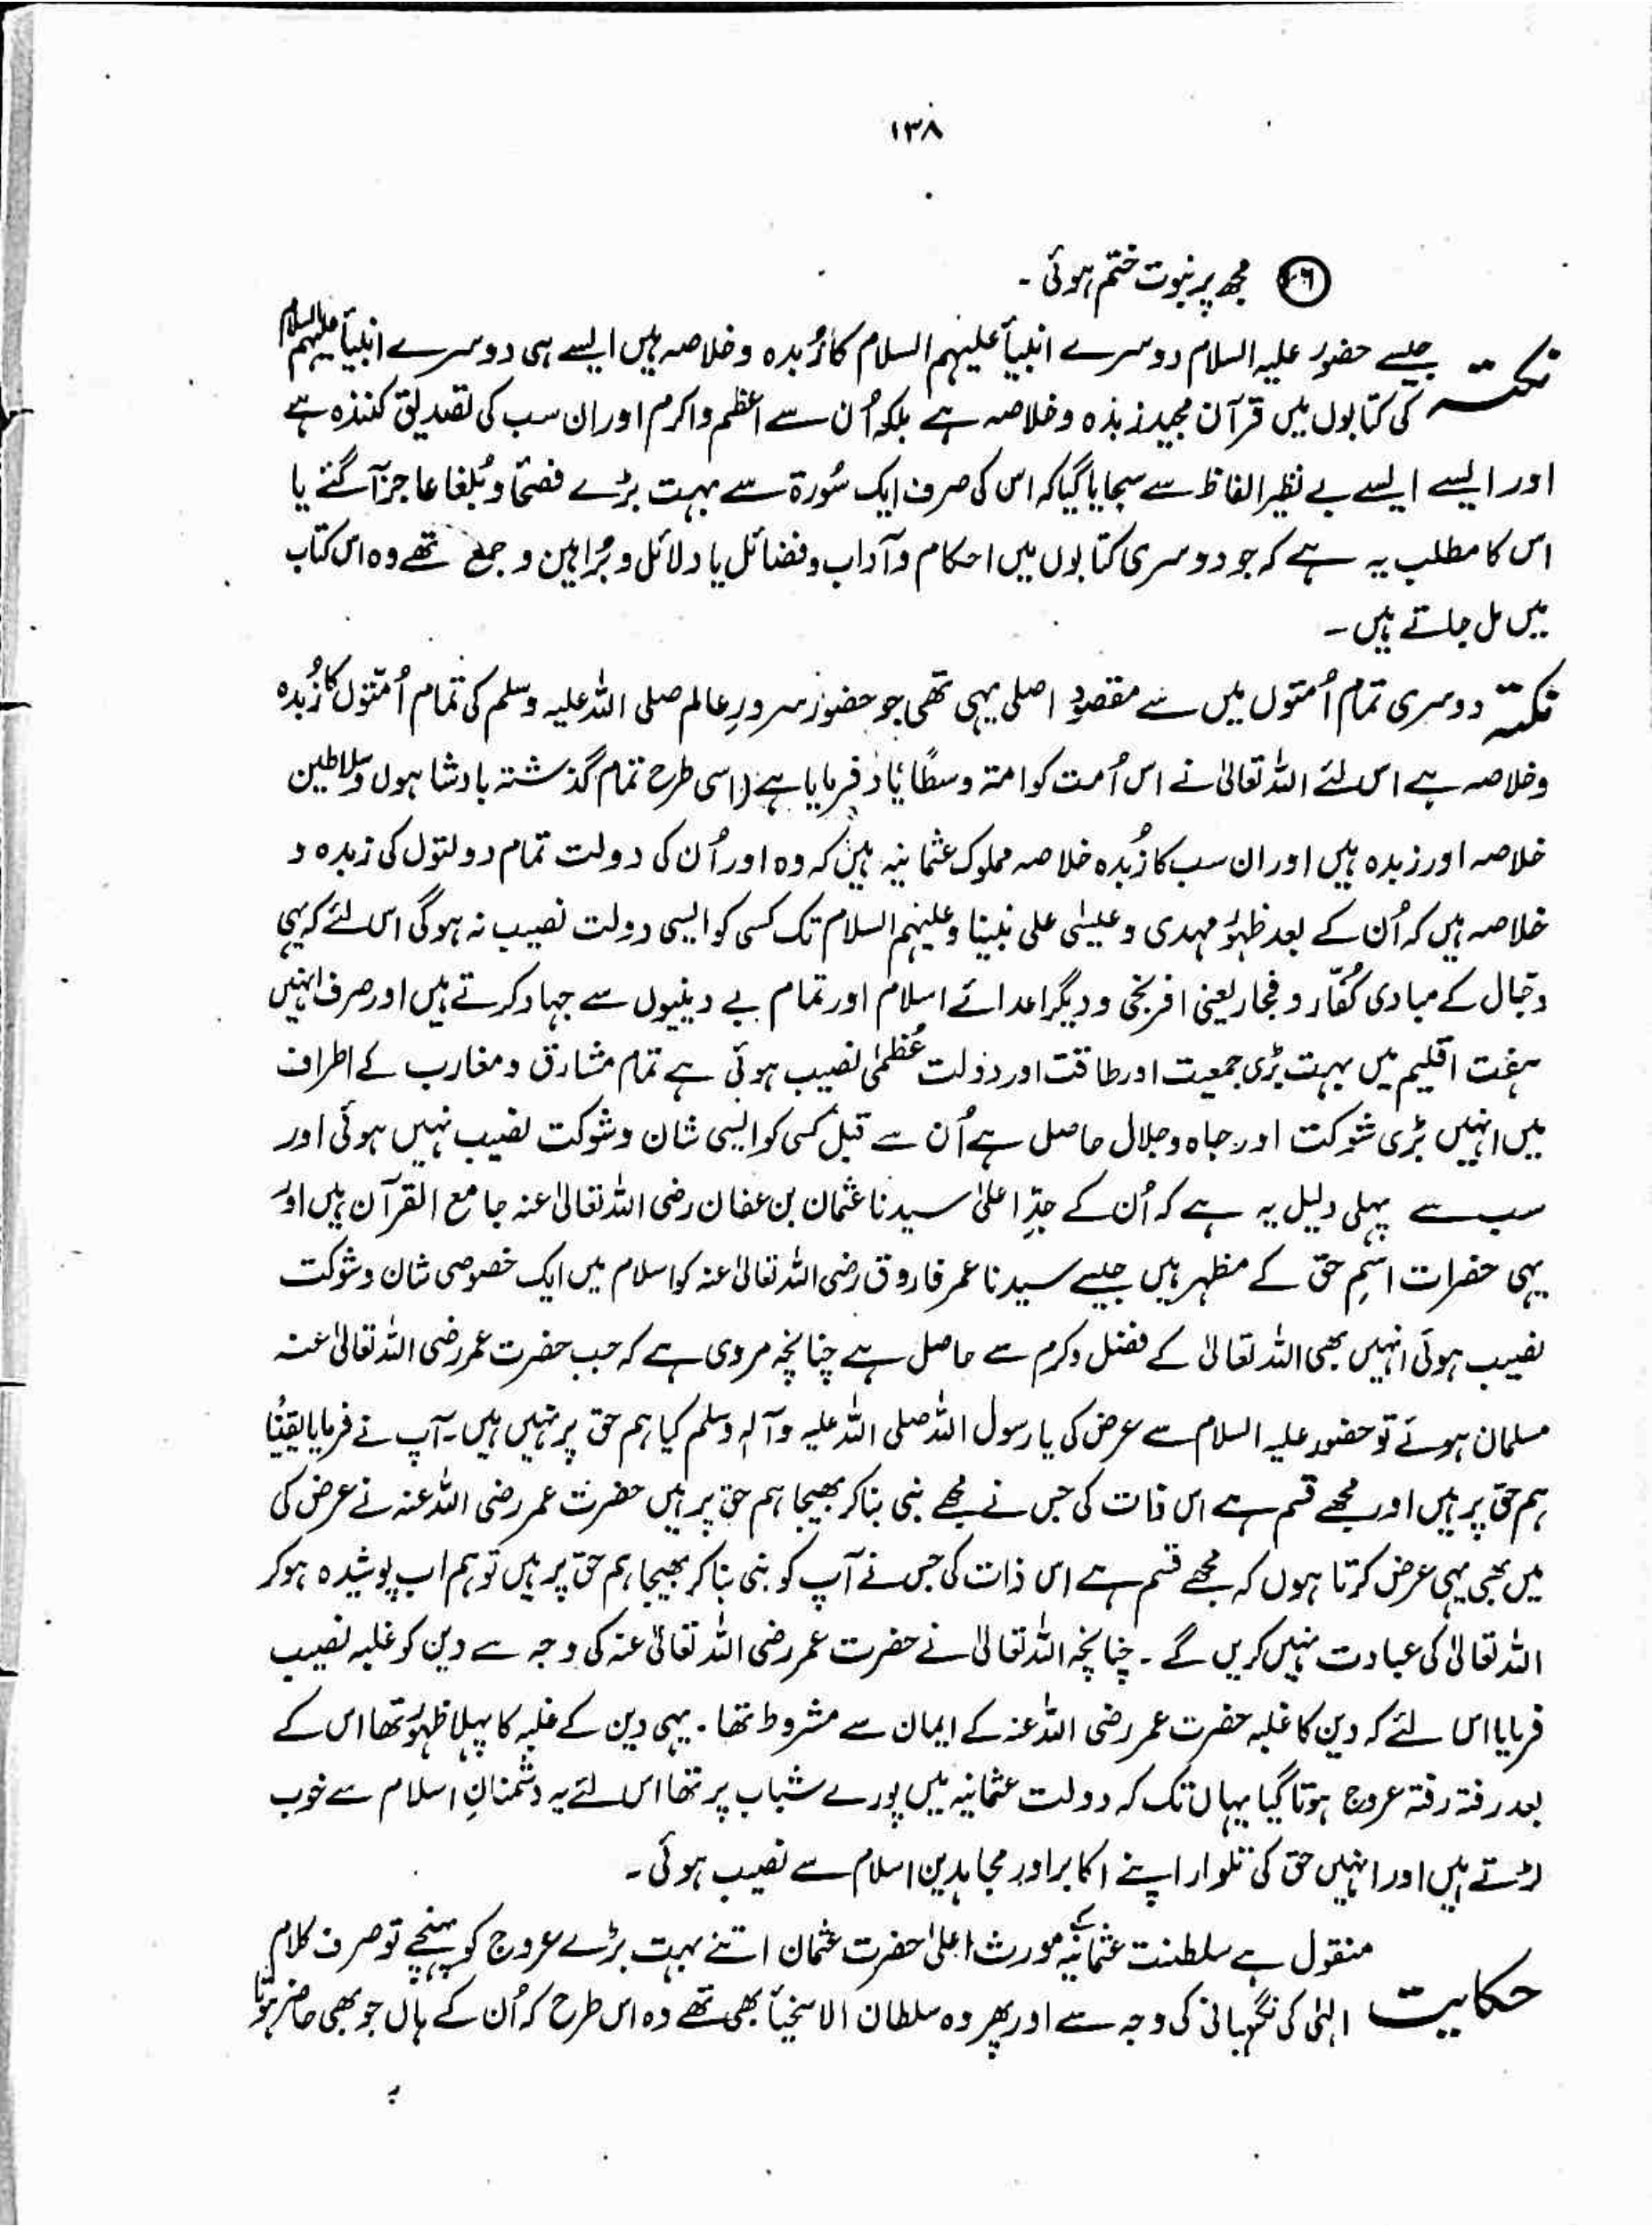 ۱۳۸
۶ مجھ پر نبوت ختم ہوئی ۔
نکتہ جیسے حضور علیہ السلام دوسرے انبیأ علیہم السلام کا زُبدہ وخلاصہ ہیں ایسے ہی دوسرے انبیأ علیہم السلام
کی کتابوں میں قرآن مجید زبدہ وخلاصہ ہے بلکہ اُن سے اعظم واکرم اور ان سب کی تصدیق کنندہ ہے
اور ایسے ایسے بے نظیر الفاظ سے سجایا گیا کہ اس کی صرف ایک سُورۃ سے بہت بڑے فصحأ و بُلغا عاجز آگئے یا
اس کا مطلب یہ ہے کہ جو دوسری کتابوں میں احکام وآداب وفضائل یا دلائل و بُراہین و جمع تھے وہ اس کتاب
میں مل جاتے ہیں ۔
نکتہ دوسری تمام اُمتوں میں سے مقصودِ اصلی یہی تھی جو حضور سرورِ عالم صلی اللہ علیہ وسلم کی تمام اُمتوں کا زُبدہ
وخلاصہ ہے اس لئے اللہ تعالیٰ نے اس اُمت کو امۃ وسطًا یاد فرمایا ہے (اسی طرح تمام گذشتہ بادشاہوں وسلاطین
خلاصہ اور زبدہ ہیں اور ان سب کا زُبدہ خلاصہ مملوک عثمانیہ ہیں کہ وہ اور اُن کی دولت تمام دولتوں کی زبدہ و
خلاصہ ہیں کہ اُن کے بعد ظہورُ مہدی وعیسٰی علی نبینا وعلیہم السلام تک کسی کو ایسی دولت نصیب نہ ہوگی اس لئے کہ یہی
دجّال کے مبادی کُفّار وفجار یعنی افرنجی ودیگر اعدائے اسلام اور تمام بے دینیوں سے جہاد کرتے ہیں اور صرف انہیں
ہفت اقلیم میں بہت بڑی جمعیت اور طاقت اور دولت عُظمٰی نصیب ہوئی ہے تمام مشارق ومغارب کے اطراف
میں انہیں بڑی شوکت اور جاہ وجلال حاصل ہے اُن سے قبل کسی کو ایسی شان وشوکت نصیب نہیں ہوئی اور
سب سے پہلی دلیل یہ ہے کہ اُن کے جدِّ اعلیٰ سیدنا عثمان بن عفان رضی اللہ تعالیٰ عنہ جامع القرآن ہیں اور
یہی حضرات اسمِ حق کے مظہر ہیں جیسے سیدنا عمر فاروق رضی اللہ تعالیٰ عنہ کو اسلام میں ایک خصوصی شان وشوکت
نصیب ہوئی انہیں بھی اللہ تعالیٰ کے فضل وکرم سے حاصل ہے چنانچہ مروی ہے کہ جب حضرت عمر رضی اللہ تعالیٰ عنہ
مسلمان ہوئے تو حضور علیہ السلام سے عرض کی یارسول اللہ صلی اللہ علیہ وآلہٖ وسلم کیا ہم حق پر نہیں ہیں ۔ آپ نے فرمایا یقینًا
ہم حق پر ہیں اور مجھے قسم ہے اس ذات کی جس نے مجھے نبی بنا کر بھیجا ہم حق پر ہیں حضرت عمر رضی اللہ عنہ نے عرض کی
میں بھی یہی عرض کرتا ہوں کہ مجھے قسم ہے اس ذات کی جس نے آپ کو نبی بنا کر بھیجا ہم حق پر ہیں تو ہم اب پوشیدہ ہوکر
اللہ تعالیٰ کی عبادت نہیں کریں گے ۔ چنانچہ اللہ تعالیٰ نے حضرت عمر رضی اللہ تعالیٰ عنہ کی وجہ سے دین کو غلبہ نصیب
فرمایا اس لئے کہ دین کا غلبہ حضرت عمر رضی اللہ عنہ کے ایمان سے مشروط تھا ۔ یہی دین کے غلبہ کا پہلا ظہورُ تھا اس کے
بعد رفتہ رفتہ عروج ہوتا گیا یہاں تک کہ دولت عثمانیہ میں پورے شباب پر تھا اس لئے یہ دشمنانِ اسلام سے خوب
لڑتے ہیں اور انہیں حق کی تلوار اپنے اکابر اور مجاہدین اسلام سے نصیب ہوئی ۔
حکایت منقول ہے سلطنت عثمانیہ کے مورث اعلیٰ حضرت عثمان اتنے بہت بڑے عروج کو پہنچے تو صرف کلام
الہٰی کی نگہبانی کی وجہ سے اور پھر وہ سلطان الاسخیأ بھی تھے وہ اس طرح کہ اُن کے ہاں جو بھی حاضر ہوتا